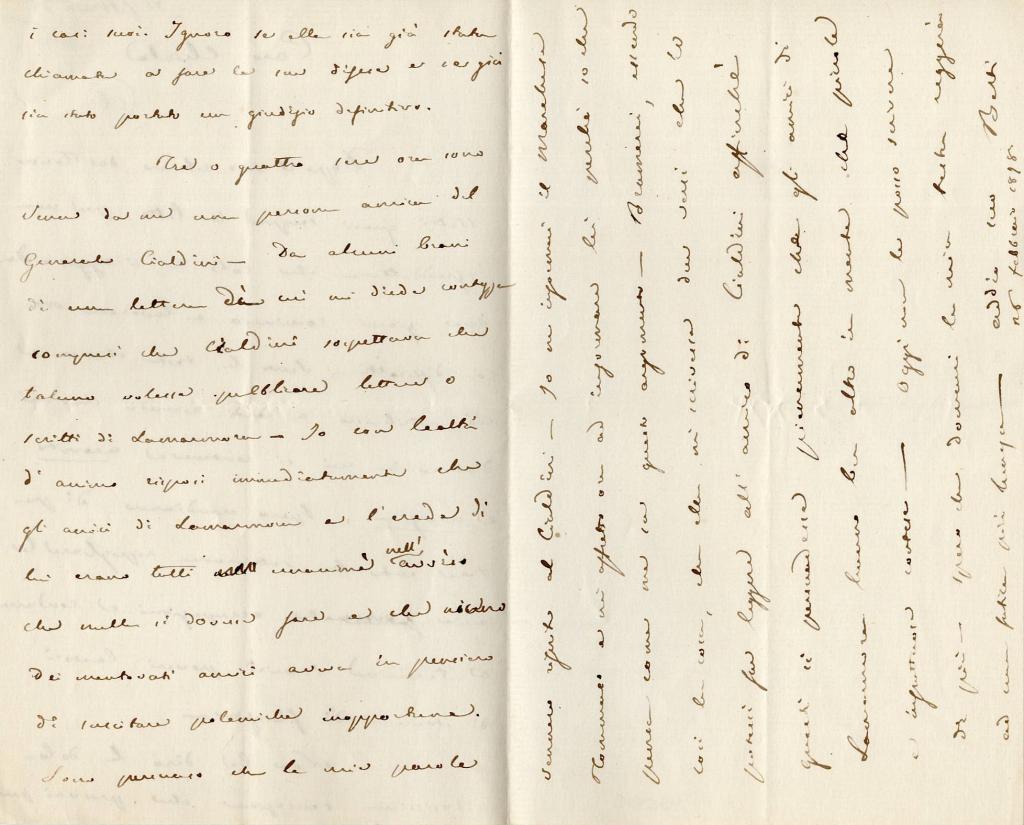 i casi suoi. Ignoro se ella sia già stata
chiamata a fare le sue difese e se già
sia stato portato un giudizio definitivo.
Tre o quattro sere ora sono
venne da me una persona amica del
Generale Cialdini — Da alcuni brani
di una lettera di cui mi diede contezza
compresi che Cialdini sospettava che
taluno volesse pubblicare lettere o
scritti di Lamarmora — Io con lealtà
d'animo risposi immediatamente che
gli amici di Lamarmora e l'erede di
lui erano tutti unanimi nell' avviso
che nulla si dovesse fare e che niuno
dei mentovati amici aveva in pensiero
di suscitare polemiche inopportune.
Sono persuaso che le mie parole
vennero riferite al Cialdini — Io non ingannai il Marchese
Tommaso e mi affretto ora ad informare lei perché so che
pensa come me su questo argomento — Bramerei, essendo
così la cosa, che ella mi scrivesse due versi che io
potessi far leggere all' amico di Cialdini affinché
questi si persuadesse pienamente che gli amici di
Lamarmora hanno ben altro in mente che piccole
e dispettose contese — Oggi non le posso scrivere
di più — Spero che domani la mia testa reggerà
ad una fatica più lunga — addio suo Berti
26 febbraio 1878